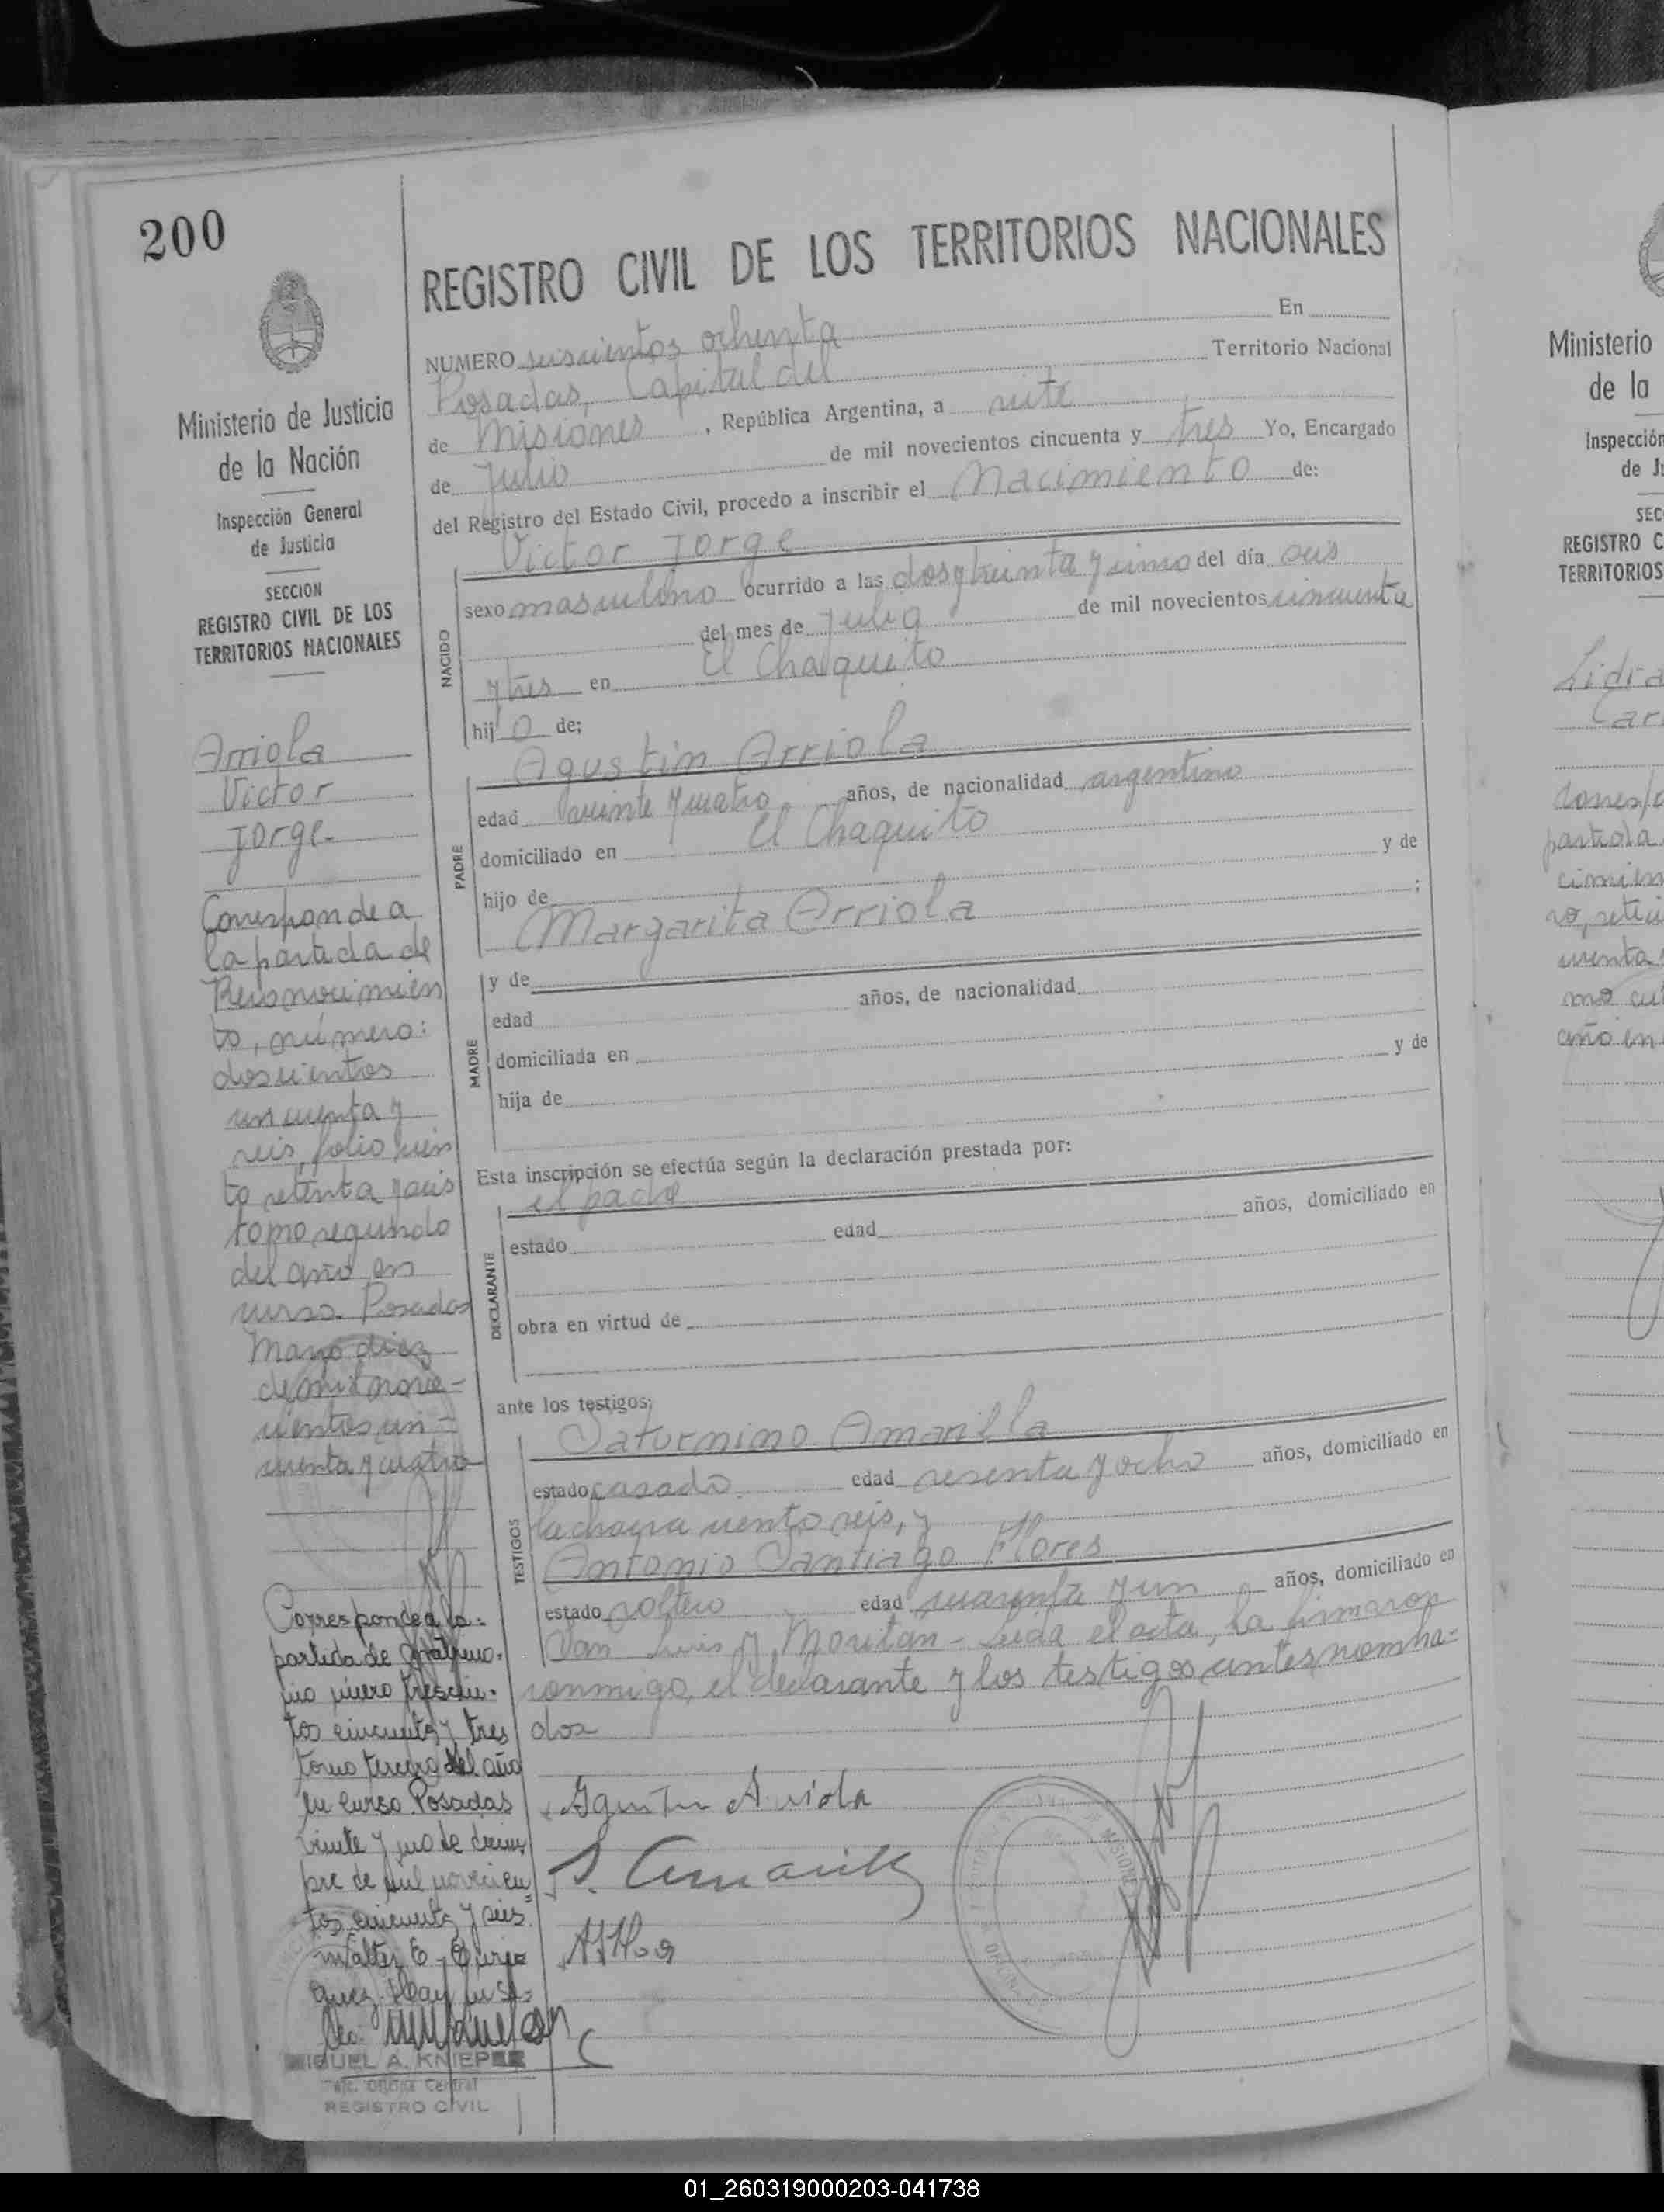 200
Ministerio de Justicia
de la Nación
Inspección General
de Justicia
SECCION
REGISTRO CIVIL DE LOS
TERRITORIOS NACIONALES
Arriola
Victor
Jorge-
Corresponde a
la partida de
Reconocimien
to, número:
doscientos
cincuenta y
seis, folio cien
to setenta y seis
tomo segundo
del año en
curso. Posadas
Mayo diez
de mil nove-
cientos cin-
cuenta y cuatro
Corresponde a la
partida de Matrimo-
nio número trescien-
tos cincuenta y tres
tomo tercero del año
en curso. Posadas
veinte y uno de diciem
bre de mil novecien
tos cincuenta y seis.
Walter E.
MIGUEL A. KNIEPER
Oficina Central
REGISTRO CIVIL
REGISTRO CIVIL DE LOS TERRITORIOS NACIONALES
NUMERO seiscientos ochenta En
Posadas, Capital del Territorio Nacional
de Misiones, República Argentina, a siete
de Julio de mil novecientos cincuenta y tres Yo, Encargado
del Registro del Estado Civil, procedo a inscribir el Nacimiento de:
Victor Jorge
NACIDO
sexo masculino ocurrido a las dos y treinta y cinco del día seis
del mes de Julio de mil novecientos cincuenta
y tres en El Chaquito
hijo de;
Agustin Arriola
PADRE
edad veinte y cuatro años, de nacionalidad argentino
domiciliado en El Chaquito
hijo de y de
Margarita Arriola ;
MADRE
y de
edad años, de nacionalidad
domiciliada en
hija de y de
Esta inscripción se efectúa según la declaración prestada por:
el padre
DECLARANTE
estado edad años, domiciliado en
obra en virtud de
ante los testigos;
Saturnino Amarilla
TESTIGOS
estado casado edad sesenta y ocho años, domiciliado en
la chacra ciento seis, y
Antonio Santiago Flores
estado soltero edad cuarenta y un años, domiciliado en
San Luis y Moritan - Leida el acta, la firmaron
conmigo, el declarante y los testigos antes nombra-
dos
Agustin Arriola
S. Amarilla
Ministerio
de la
Inspección
de J
SEC
REGISTRO C
TERRITORIOS
Lidia
Car
01_260319000203-041738